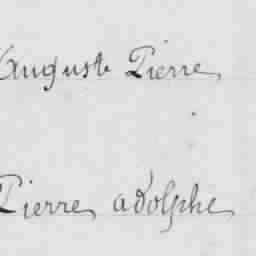 Auguste Pierre
Pierre adolphe